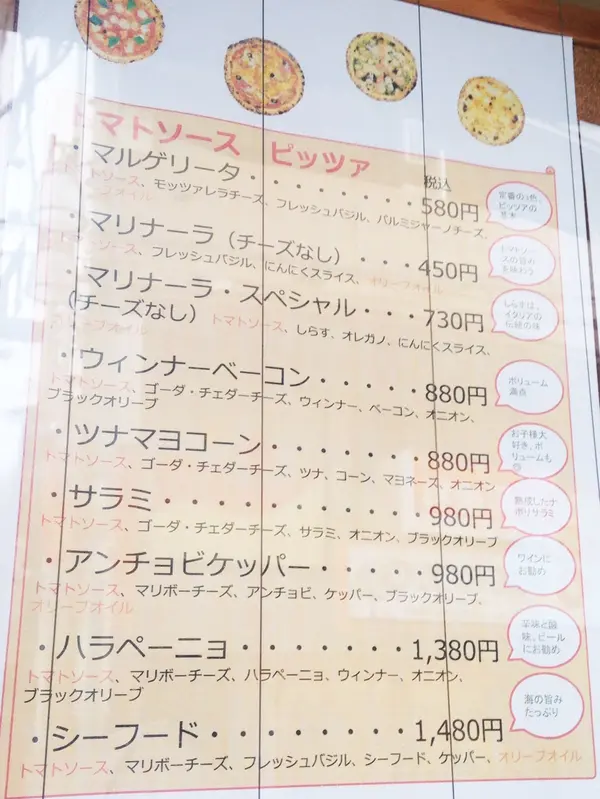 トマトソース ピッツァ
税込
・マルゲリータ・・・・・・・・580円
トマトソース、モッツァレラチーズ、フレッシュバジル、パルミジャーノチーズ、
オリーブオイル
定番の3色、
ピッツアの
基本
・マリナーラ（チーズなし）・・・450円
トマトソース、フレッシュバジル、にんにくスライス、オリーブオイル
トマトソー
スの旨みを
味わう
・マリナーラ・スペシャル・・・730円
（チーズなし） トマトソース、しらす、オレガノ、にんにくスライス、
オリーブオイル
しらすは、
イタリアの
伝統の味
・ウィンナーベーコン・・・・・880円
トマトソース、ゴーダ・チェダーチーズ、ウィンナー、ベーコン、オニオン、
ブラックオリーブ
ボリューム
満点
・ツナマヨコーン・・・・・・・880円
トマトソース、ゴーダ・チェダーチーズ、ツナ、コーン、マヨネーズ、オニオン
お子様大
好き、ボ
リュームも
◎
・サラミ・・・・・・・・・・・980円
トマトソース、ゴーダ・チェダーチーズ、サラミ、オニオン、ブラックオリーブ
熟成したナ
ポリサラミ
・アンチョビケッパー・・・・・980円
トマトソース、マリボーチーズ、アンチョビ、ケッパー、ブラックオリーブ、
オリーブオイル
ワインに
お勧め
・ハラペーニョ・・・・・・・1,380円
トマトソース、マリボーチーズ、ハラペーニョ、ウィンナー、オニオン、
ブラックオリーブ
辛味と酸
味、ビール
にお勧め
・シーフード・・・・・・・・1,480円
トマトソース、マリボーチーズ、フレッシュバジル、シーフード、ケッパー、オリーブオイル
海の旨み
たっぷり